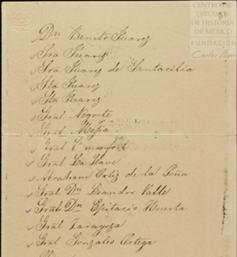 CENTRO DE
ESTUDIOS
DE HISTORIA
DE MEXICO
FUNDACIÓN
Carlos Slim
Dn Benito Juarez
Sra Juarez
Sra Juarez de Santacilia
Sta Juarez
Sta Juarez
Gral Negrete
Gral Mejia
Gral Comonfort
Gral La Llave
Abraham Ortiz de la Peña
Gral Dn Leandro Valle
Gral Dn Epitacio Huerta
Gral Zaragoza
Gral Gonzales Ortega